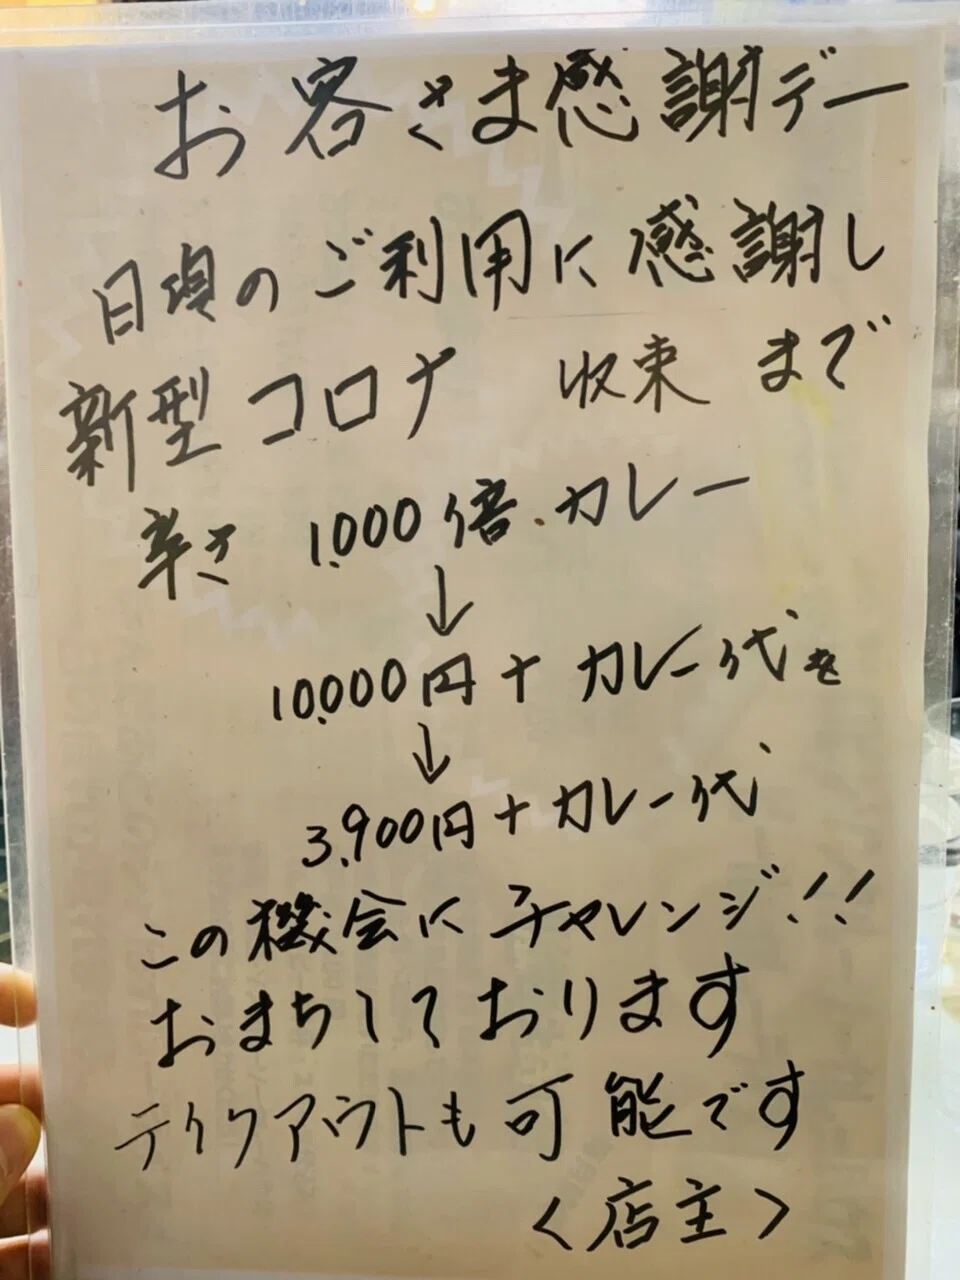 お客さま感謝デー
日頃のご利用に感謝し
新型コロナ 収束 まで
辛さ 1,000倍.カレー
↓
10,000円+カレー代を
↓
3,900円+カレー代
この機会にチャレンジ!!
おまちしております
テイクアウトも可能です
<店主>